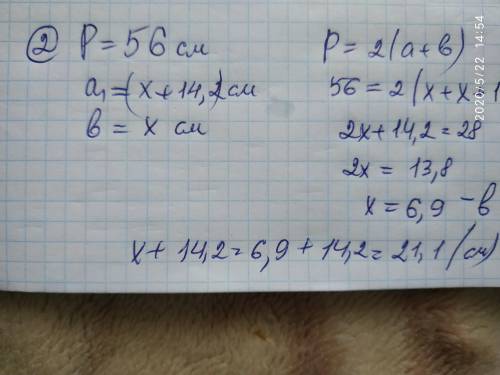 ② P = 56 см
a₁ = (x + 14,2) см
в = x см
P = 2(a + в)
56 = 2(x + x + 1
2x + 14,2 = 28
2x = 13,8
x = 6,9 – в
x + 14,2 = 6,9 + 14,2 = 21,1 (см)
2020/5/22 14:54